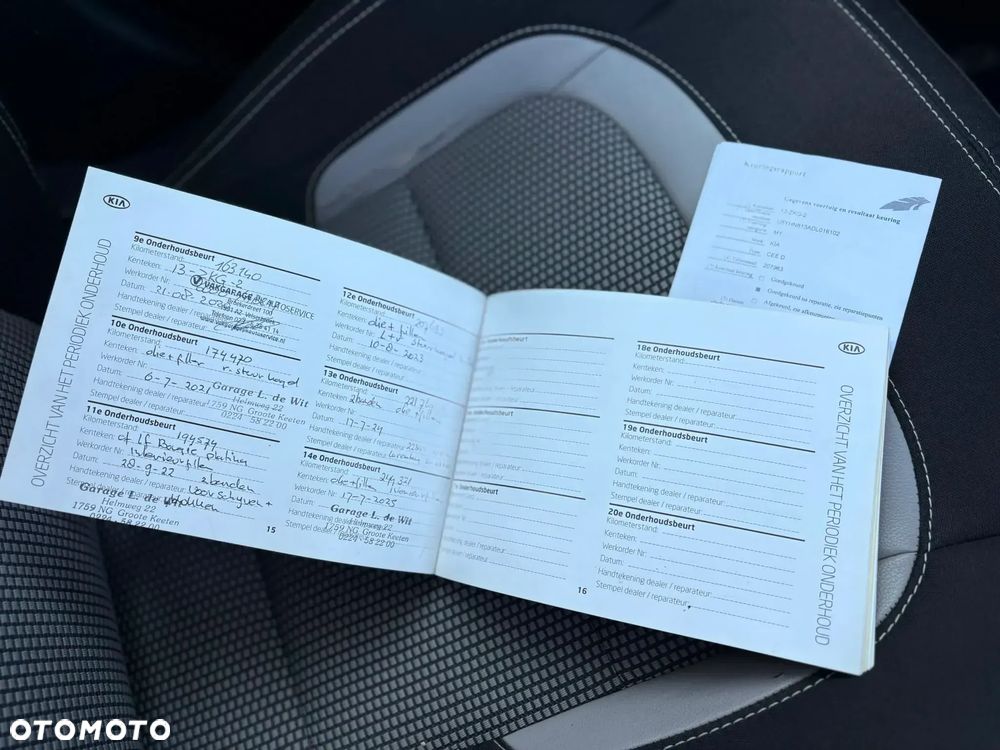 KIA
OVERZICHT VAN HET PERIODIEK ONDERHOUD
9e Onderhoudsbeurt
Kilometerstand: 163.140
Kenteken: 13-ZKG-2
Werkorder Nr: VAKGARAGE AUTOSERVICE
Datum: 21-08-
Handtekening dealer /
Stempel dealer / reparateur:
10e Onderhoudsbeurt
Kilometerstand: 174420
Kenteken: olie + filter
Werkorder Nr:
Datum: 6-7-2021
Handtekening dealer / reparateur: Garage L. de Wit
Helmweg 22
Stempel dealer / reparateur: 1759 NG Groote Keeten
0224 58 22 00
11e Onderhoudsbeurt
Kilometerstand: 194574
Kenteken:
Werkorder Nr: Interieurfilter
Datum: 20-9-22 2 banden
Handtekening dealer / reparateur: Voor schijven +
Stempel dealer / reparateur: blokken
Garage L. de Wit
Helmweg 22
1759 NG Groote Keeten
0224 58 22 00
15
12e Onderhoudsbeurt
Kilometerstand:
Kenteken: olie + filter
Werkorder Nr:
Datum: 10-8-2023
Handtekening dealer / reparateur:
Stempel dealer / reparateur:
13e Onderhoudsbeurt
Kilometerstand:
Kenteken: 2 banden olie + filter
Werkorder Nr:
Datum: 17-7-24
Handtekening dealer / reparateur:
Stempel dealer / reparateur:
14e Onderhoudsbeurt
Kilometerstand: 244321
Kenteken: olie + filter
Werkorder Nr:
Datum: 17-7-2025
Garage L. de Wit
Handtekening dealer / Helmweg 22
1759 NG Groote Keeten
Stempel dealer / 0224 58 22 00
onderhoudsbeurt
dealer / reparateur:
dealer / reparateur:
16
18e Onderhoudsbeurt
Kilometerstand:
Kenteken:
Werkorder Nr:
Datum:
Handtekening dealer / reparateur:
Stempel dealer / reparateur:
19e Onderhoudsbeurt
Kilometerstand:
Kenteken:
Werkorder Nr:
Datum:
Handtekening dealer / reparateur:
Stempel dealer / reparateur:
20e Onderhoudsbeurt
Kilometerstand:
Kenteken:
Werkorder Nr:
Datum:
Handtekening dealer / reparateur:
Stempel dealer / reparateur:
KIA
OVERZICHT VAN HET PERIODIEK ONDERHOUD
Keuringsrapport
Gegevens voertuig en resultaat keuring
13-ZKG-2
M1
KIA
CEE D
207963
Goedgekeurd
Goedgekeurd na reparatie, zie reparatiepunten
Afgekeurd, zie afkeurpunten
OTOMOTO